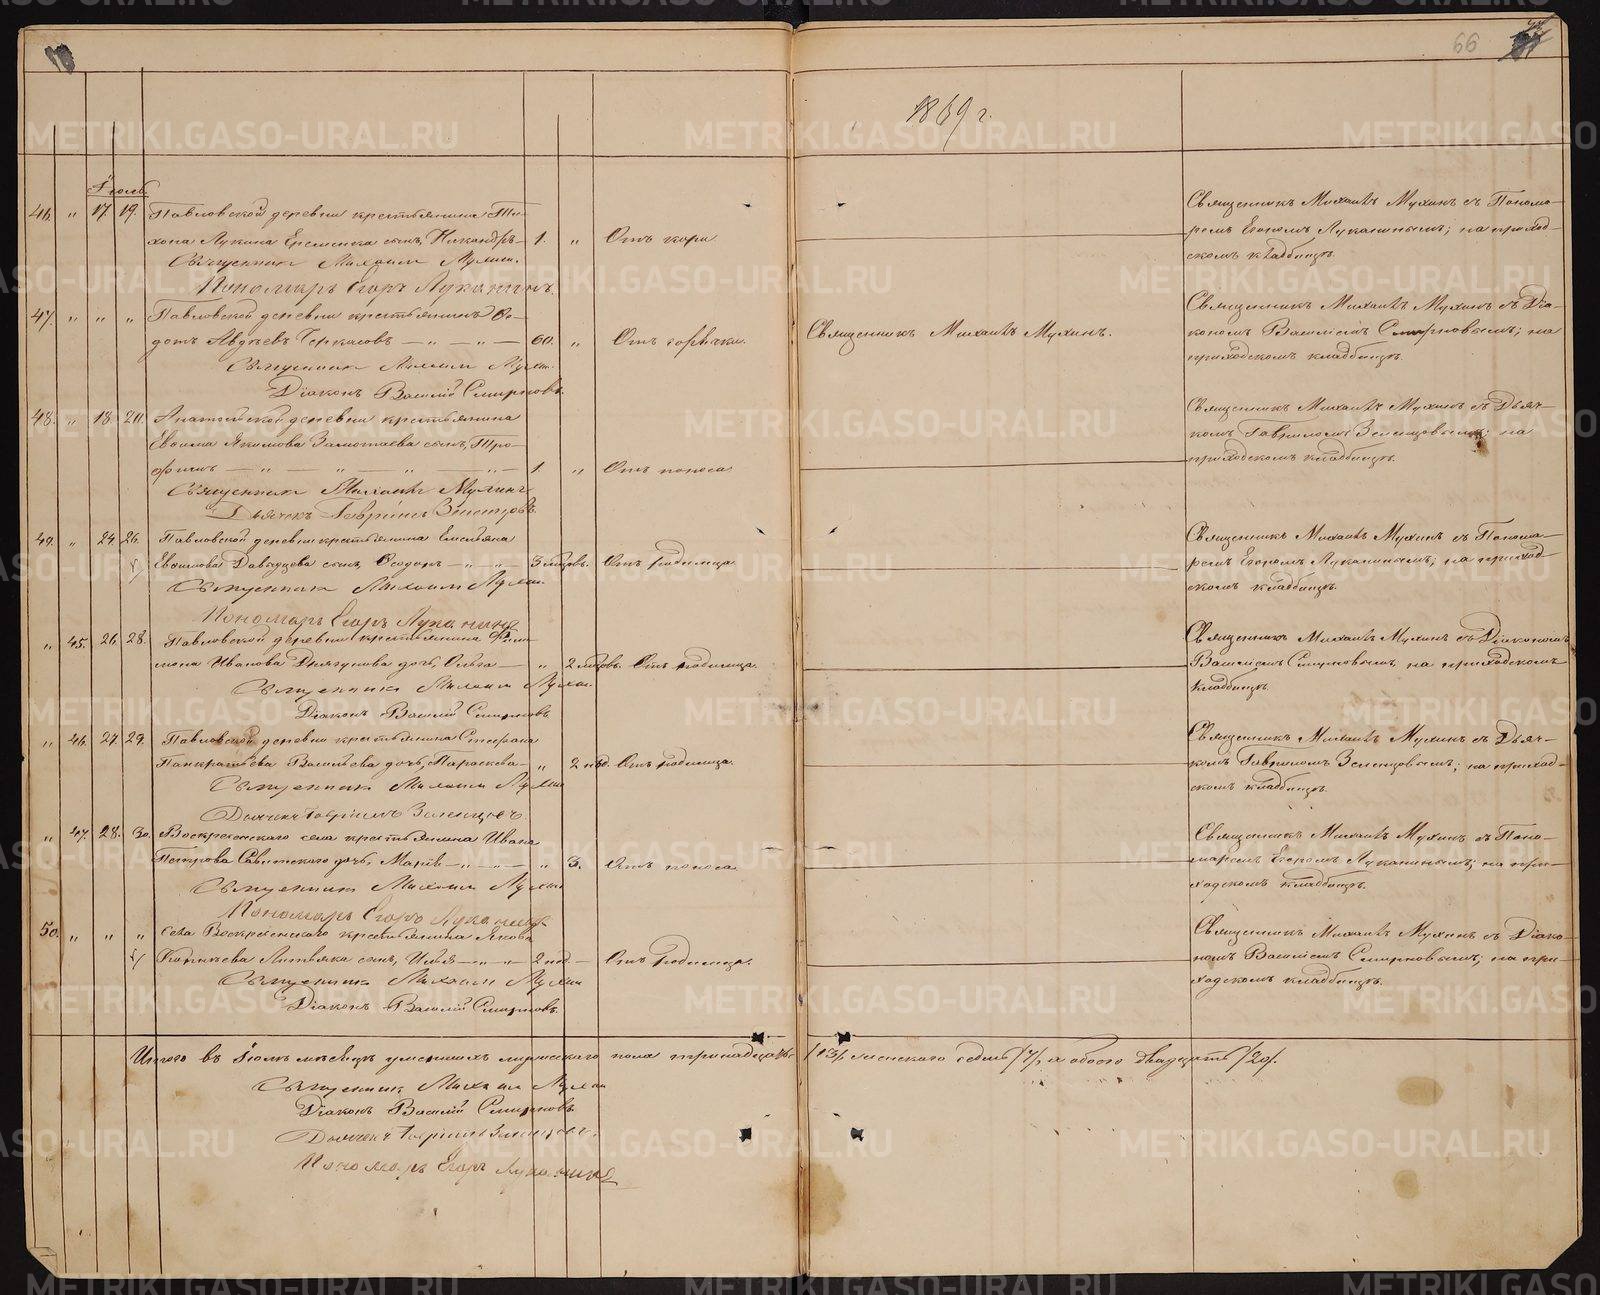 66
1869 г.
Іюль.
46. „ 17. 19. Павловской деревни крестьянина Ти-
хона Лукина Еремъ сынъ, Никандръ — 1. „ Отъ кори
Священникъ Михаилъ Мухинъ.
Пономарь Егоръ Луканинъ.
Священникъ Михаилъ Мухинъ съ Понома-
ремъ Егоромъ Луканинымъ; на приход-
скомъ кладбищѣ.
47. „ „ „ Павловской деревни крестьянинъ Ѳе-
дотъ Авдѣевъ Черкасовъ — „ — „ — 60. „ Отъ горячки. Священникъ Михаилъ Мухинъ.
Священникъ Михаилъ Мухинъ.
Діаконъ Василій Смирновъ.
Священникъ Михаилъ Мухинъ съ Діа-
кономъ Василіемъ Смирновымъ; на
приходскомъ кладбищѣ.
48. „ 18. 20. деревни крестьянина
Евѳима Якимова сынъ, Тро-
фимъ — „ — „ — „ — „ — 1. „ Отъ поноса
Священникъ Михаилъ Мухинъ
Дьячекъ Гавріилъ Зеленцовъ.
Священникъ Михаилъ Мухинъ съ Дьяч-
комъ Гавриломъ Зеленцовымъ; на
приходскомъ кладбищѣ.
49. „ 24. 26. Павловской деревни крестьянина Емельяна
Евѳимова Давыдова сынъ, Ѳедоръ — „ „ 3 мѣсяв. Отъ родимца.
Священникъ Михаилъ Мухинъ.
Пономарь Егоръ Луканинъ
Священникъ Михаилъ Мухинъ съ Понома-
ремъ Егоромъ Луканинымъ; на приход-
скомъ кладбищѣ.
„ 45. 26. 28. Павловской деревни крестьянина Фили-
мона Иванова дочь, Ольга — „ 2 мѣсяв. Отъ родимца.
Священникъ Михаилъ Мухинъ.
Діаконъ Василій Смирновъ
Священникъ Михаилъ Мухинъ съ Діакономъ
Василіемъ Смирновымъ, на приходскомъ
кладбищѣ.
„ 46. 27. 29. Павловской деревни крестьянина Стефана
Панкратьева Васильева дочь, Параскева — „ 2 нед. Отъ родимца.
Священникъ Михаилъ Мухинъ
Дьячекъ Гавріилъ Зеленцовъ
Священникъ Михаилъ Мухинъ съ Дьяч-
комъ Гавриломъ Зеленцовымъ; на приход-
скомъ кладбищѣ.
„ 47. 28. 30. Воскресенскаго села крестьянина Ивана
Петрова дочь, Марія — „ — „ — „ 3. Отъ поноса.
Священникъ Михаилъ Мухинъ
Пономарь Егоръ Луканинъ
Священникъ Михаилъ Мухинъ съ Поно-
маремъ Егоромъ Луканинымъ; на при-
ходскомъ кладбищѣ.
50. „ „ „ Села Воскресенскаго крестьянина Якова
сынъ, Илья — „ — „ 2 нед. — Отъ родимца.
Священникъ Михаилъ Мухинъ
Діаконъ Василій Смирновъ.
Священникъ Михаилъ Мухинъ съ Діако-
номъ Василіемъ Смирновымъ; на при-
ходскомъ кладбищѣ.
Итого въ Іюлѣ мѣсяцѣ умершихъ мужескаго пола тринадцать /13/, женскаго семь /7/, а обоего двадцать /20/.
Священникъ Михаилъ Мухинъ
Діаконъ Василій Смирновъ
Дьячекъ Гавріилъ Зеленцовъ.
Пономарь Егоръ Луканинъ
METRIKI.GASO-URAL.RU